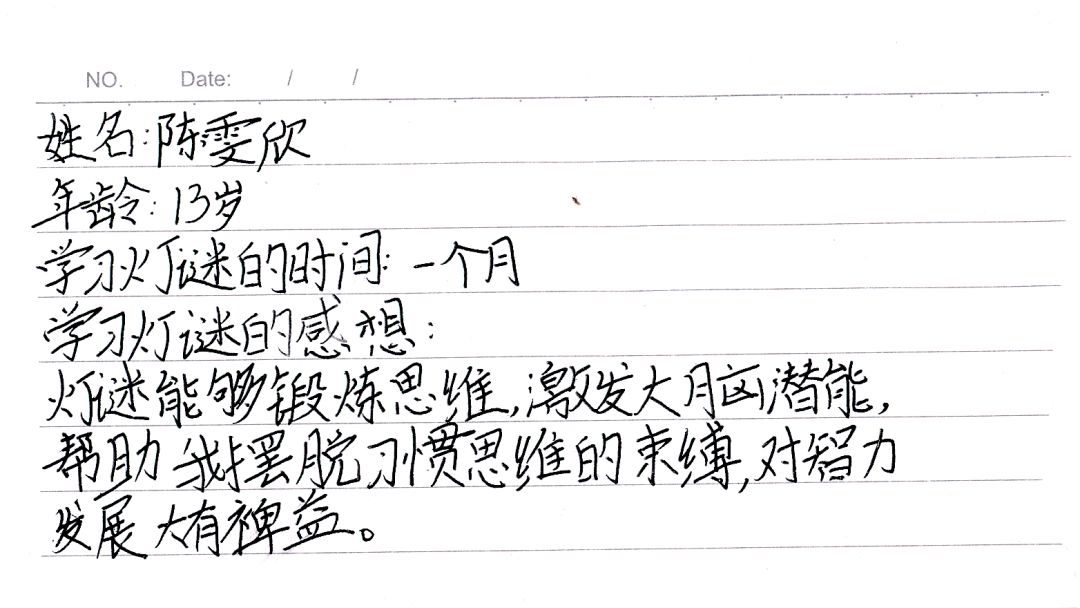 NO. Date: / /
姓名:陈雯欣
年龄:13岁
学习灯谜的时间:一个月
学习灯谜的感想:
灯谜能够锻炼思维,激发大脑潜能,
帮助我摆脱习惯思维的束缚,对智力
发展大有裨益。